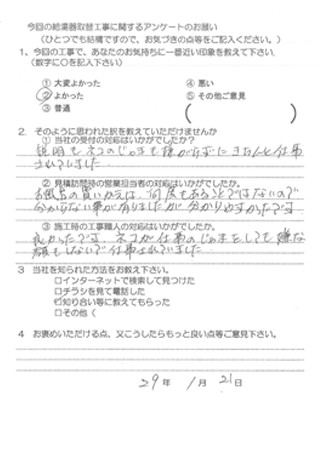 今回の給湯器取替工事に関するアンケートのお願い
(ひとつでも結構ですので、お気づきの点等をご記入ください。)
1、今回の工事で、あなたのお気持ちに一番近い印象を教えて下さい。
(数字に○を記入下さい)
①大変よかった ④悪い
②よかった ⑤その他ご意見
③普通 ( )
2. そのように思われた訳を教えていただけませんか
①当社の受付の対応はいかがでしたか?
説明もネコのじゃまも嫌がらずにきちんと仕事
されていました
②見積訪問時の営業担当者の対応はいかがでしたか。
お風呂の買いかえは、何度もあることではないので
分からない事が有りましたが分かりやすかったです
③施工時の工事職人の対応はいかがでしたか。
良かったです。ネコが仕事のじゃまをしても嫌な
顔もしないで仕事されていました
3 当社を知られた方法をお教え下さい。
□インターネットで検索して見つけた
□チラシを見て電話した
☑知り合い等に教えてもらった
□その他(
4 お褒めいただける点、又こうしたらもっと良い点等ご意見下さい。
29年 1月 21日